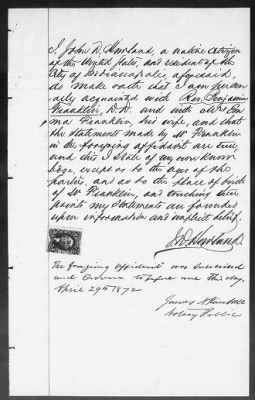 I, John D. Howland, a native citizen
of the United States, and resident of the
City of Indianapolis, aforesaid,
do make oath that I am person
ally acquainted with Rev. Benjamin
Franklin, D.D. and with Mrs. Em
ma Franklin, his wife, and that
the statements made by Mr. Franklin
in the foregoing affidavit are true,
and this I state of my own know
ledge, except as to the ages of the
parties, and as to the place of birth
of Mr. Franklin, and touching
points my statements are founded
upon information and implicit belief.
J.D. Howland
The foregoing affidavit was subscribed
and sworn to before me this day,
April 29th 1872
James
Notary Public